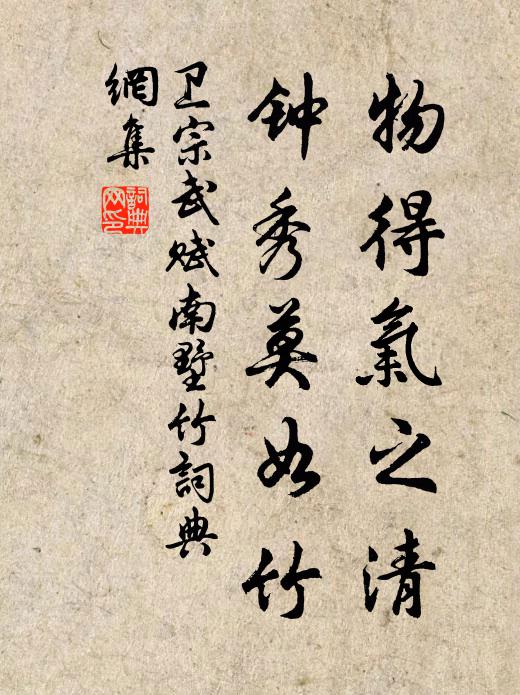 物得氣之清
钟秀莫如竹
卫宗武赋南墅竹詞典
網集
詞典
网印